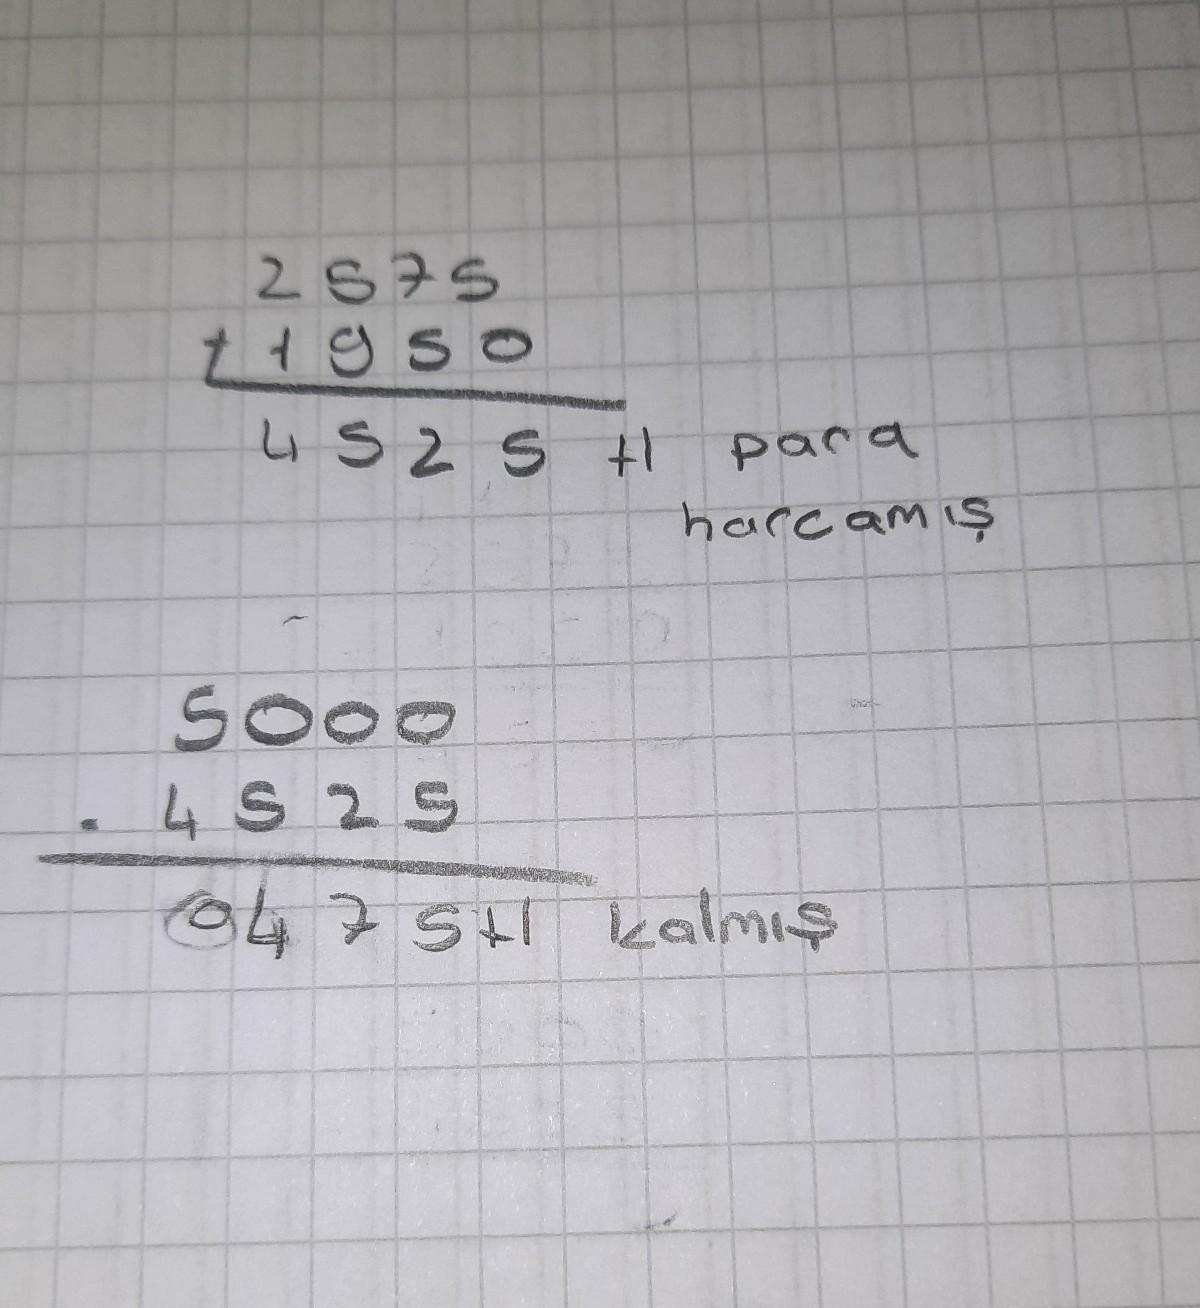 2575
+1950
4525 tl para
harcamış
5000
- 4525
0475tl kalmış